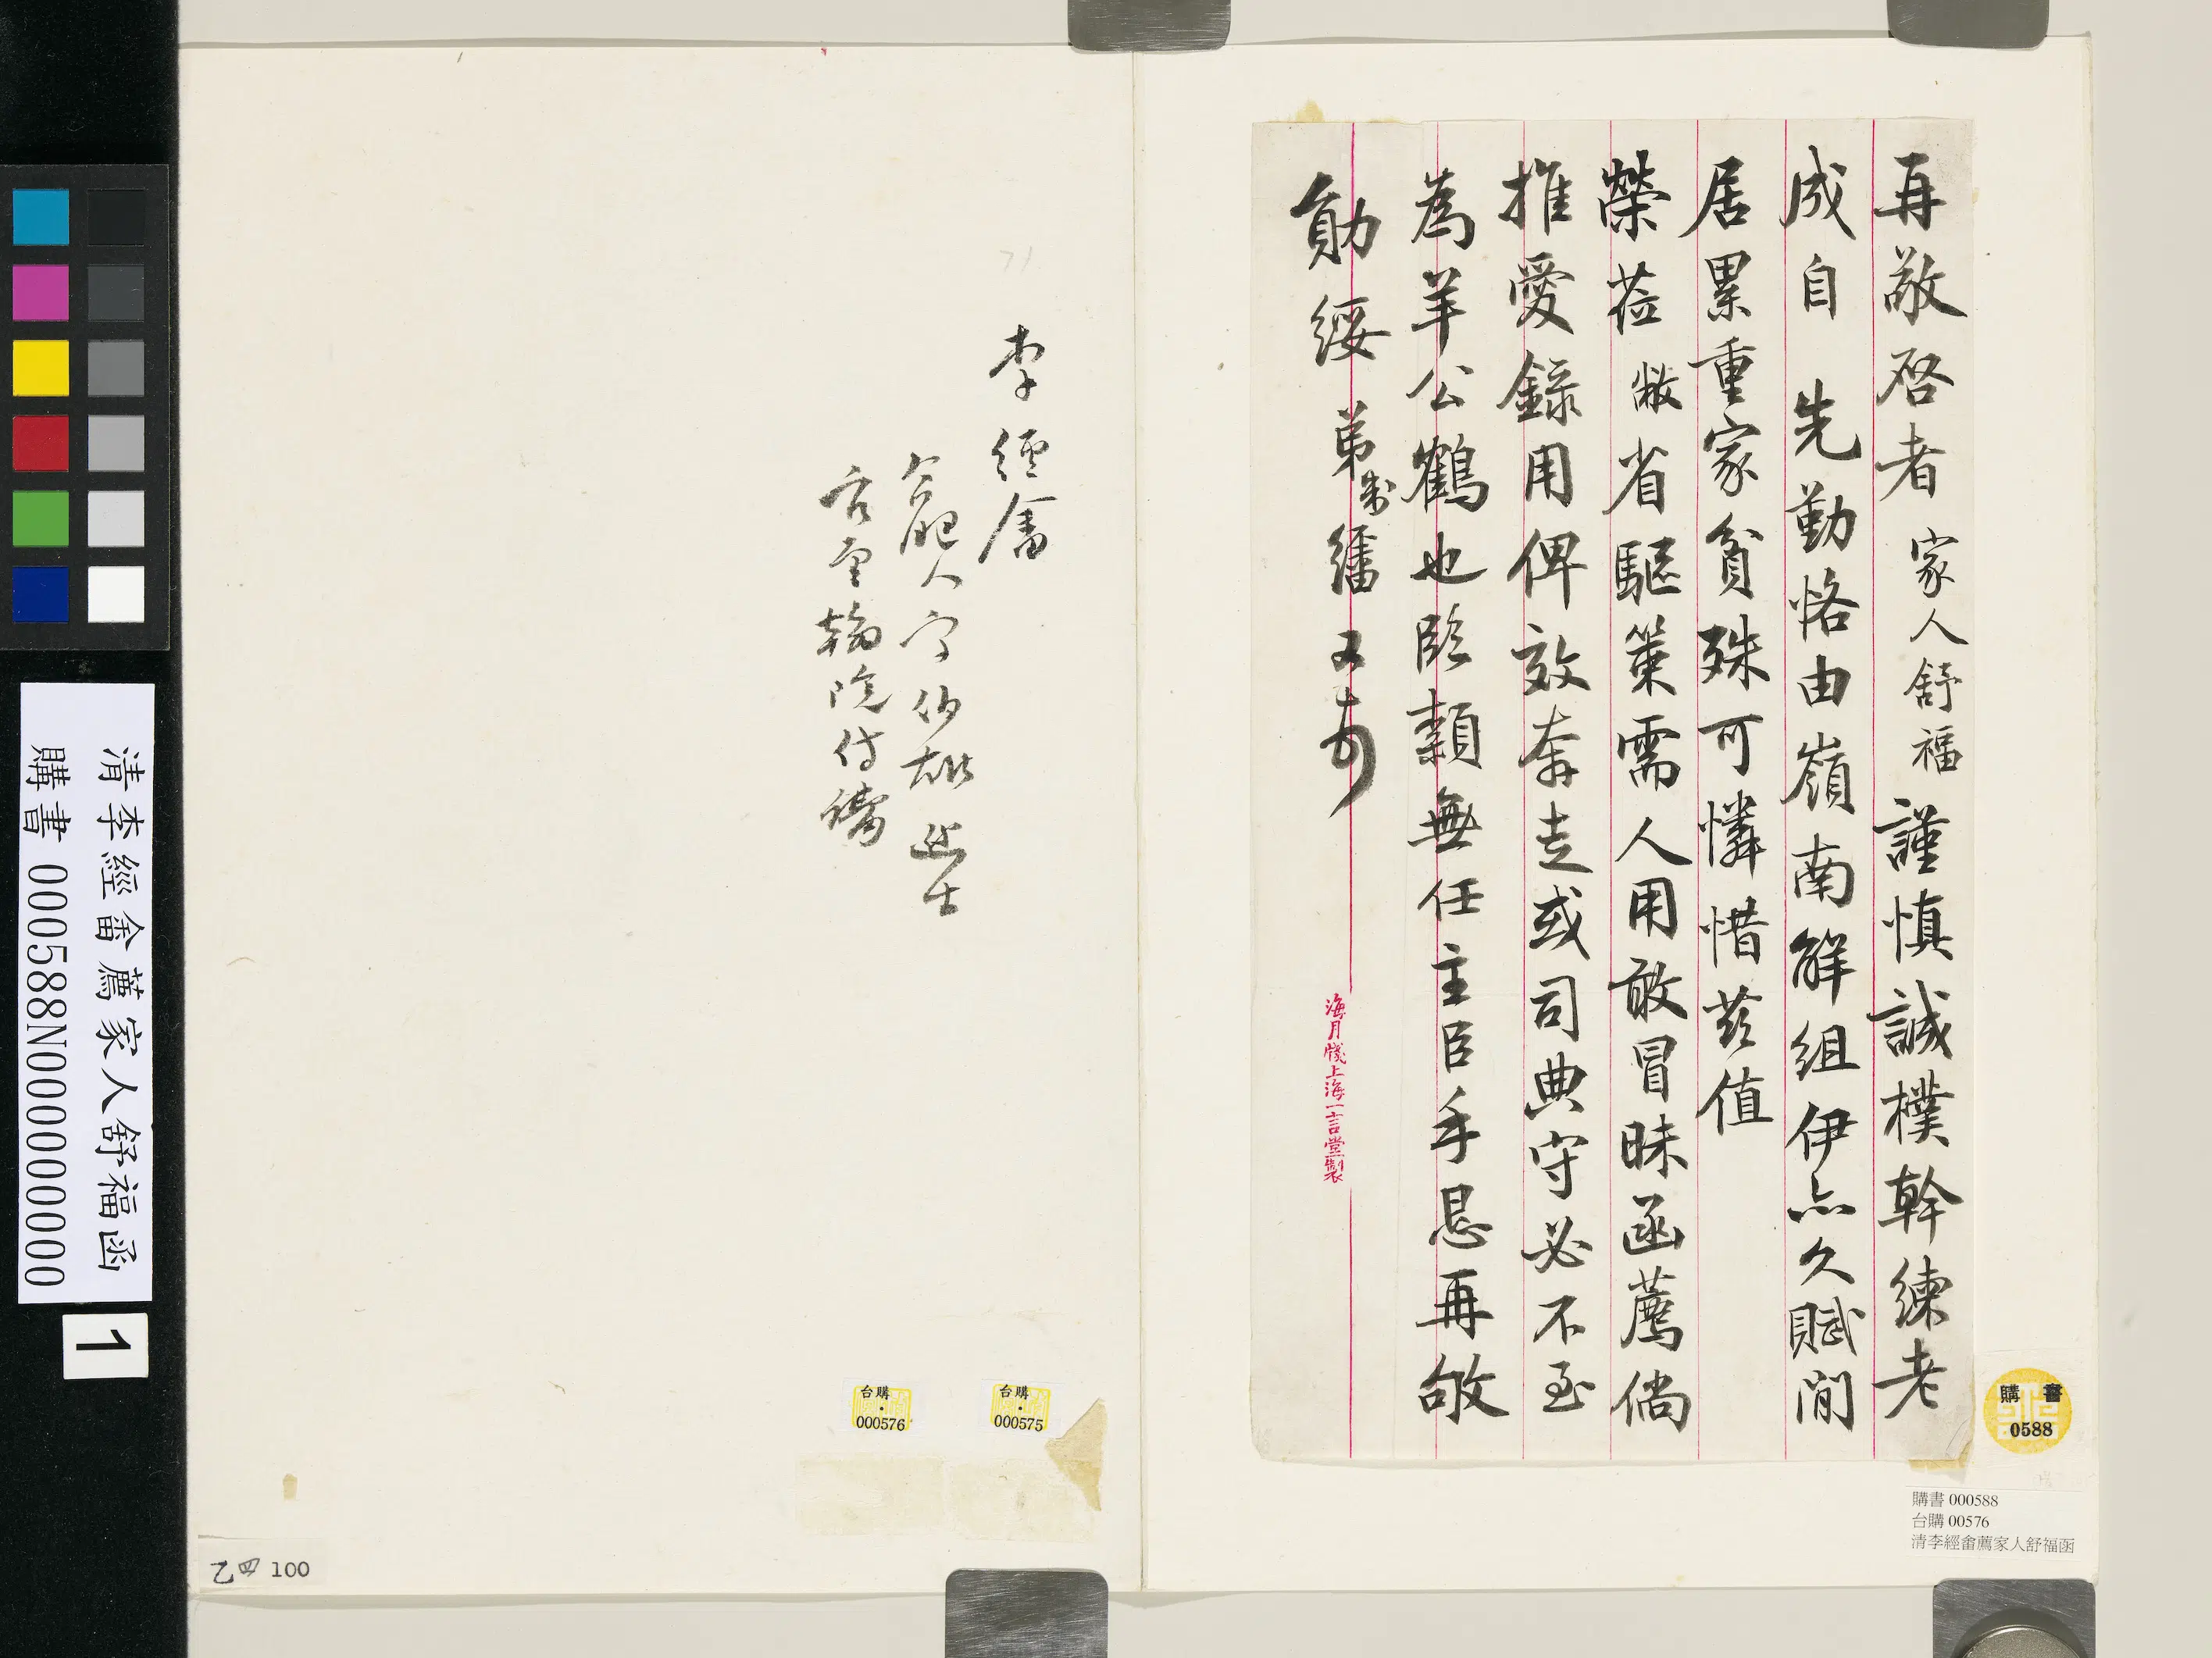 再敬啓者家人舒福謹慎誠樸幹練老
成自　先勤恪由嶺南解組伊亦久賦閒
居累重家貧殊可憐惜茲值
榮蒞敝省驅策需人用敢冒昧函薦倘
推愛錄用俾效奔走或司典守必不至
為羊公鶴也臨穎無任主臣手此再敬
勛綏弟制繙又頓
海月牋上海一言堂製
李經畬
合肥人字伯雄進士
官至翰院侍講
購書
0588
購書 000588
台購 00576
清李經畬薦家人舒福函
台購
000575
台購
000576
乙四 100
清李經畬薦家人舒福函
購書 000588N000000000
1